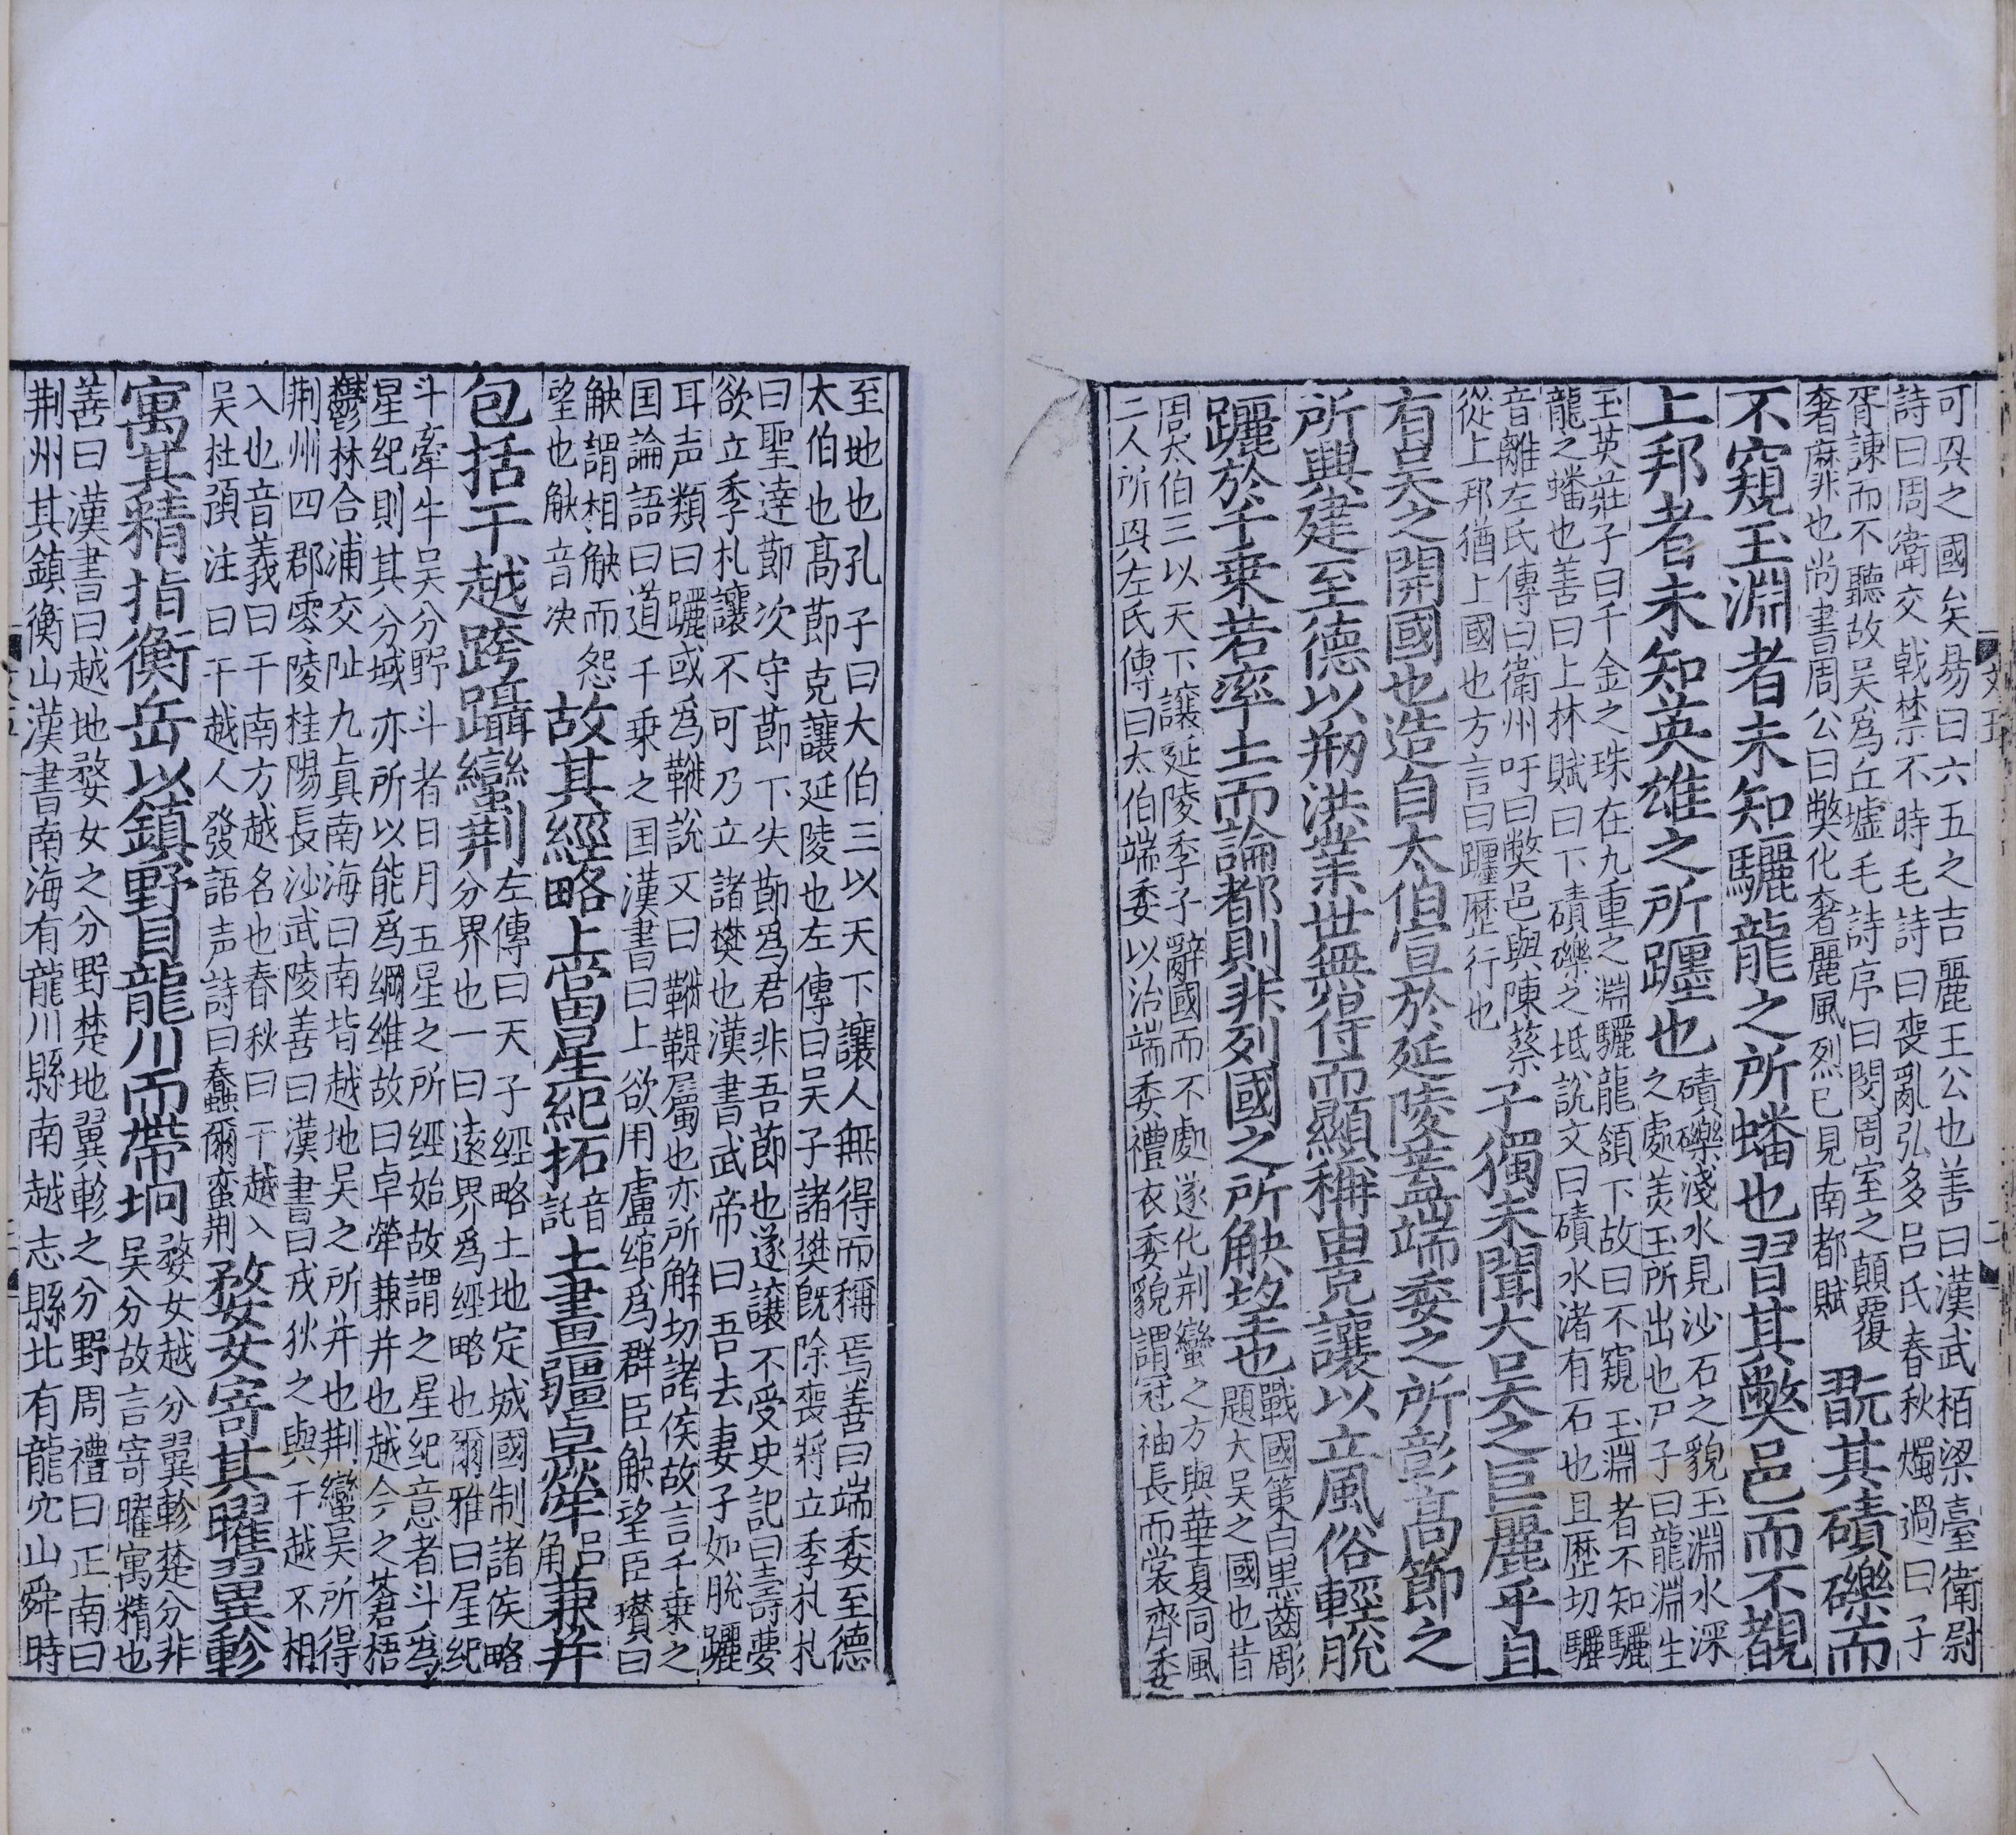 可與之國矣易曰六五之吉麗王公也善曰漢武栢梁臺衛尉
詩曰周衛交戟禁不時毛詩曰喪亂弘多吕氏春秋燭過曰子
胥諫而不聽故吴爲丘墟毛詩序曰閔周室之顛覆
奢靡也尚書周公曰獘化奢麗風烈已見南都賦
翫其磧礫而
不窺玉淵者未知驪龍之所蟠也習其獘邑而不覩
上邦者未知英雄之所躔也
磧礫淺水見沙石之貌玉淵水深
之處羙玉所出也尸子曰龍淵生
玉英莊子曰千金之珠在九重之淵驪龍頷下故曰不窺玉淵者不知驪
龍之蟠也善曰上林賦曰下磧礫之坻說文曰磧水渚有石也且歷切驪
音離左氏傳曰衛州吁曰獘邑與陳蔡
從上邦猶上國也方言曰躔歷行也
子獨未聞大吴之巨麗乎且
有吴之開國也造自太伯宣於延陵蓋端委之所彰高節之
所興建至德以剏洪業世無得而顯稱由克讓以立風俗輕脱
躧於千乗若率土而論都則非列國之所觖望也
戰國策曰黒齒彫
題大吴之國也昔
周太伯三以天下讓延陵季子辭國而不處遂化荆蠻之方與華夏同風
二人所興左氏傳曰太伯端委以治端委禮衣委貌謂冠袖長而裳齊委
至地也孔子曰大伯三以天下讓人無得而稱焉善曰端委至德
太伯也髙節克讓延陵也左傳曰吴子諸樊旣除喪將立季札札
曰聖逹節次守節下失節爲君非吾節也遂讓不受史記曰壽夢
欲立季札讓不可乃立諸樊也漢書武帝曰吾去妻子如脱躧
耳声類曰躧或爲鞾説文曰鞾鞮屬也亦所解切諸侯故言千乗之
国論語曰道千乗之国漢書曰上欲用盧綰爲群臣觖望臣瓉曰
觖謂相觖而怨
望也觖音决
故其經略上當星紀拓
音
託
土畫疆卓犖
吕
角
兼并
包括干越跨躡蠻荆
左傳曰天子經略土地定城國制諸侯略
分界也一曰逺界爲經略也爾雅曰星紀
斗牽牛吴分野斗者日月五星之所經始故謂之星紀意者斗爲
星紀則其分域亦所以能爲綱維故曰卓犖兼并也越今之蒼梧
欝林合浦交阯九真南海曰南皆越地吴之所并也荆蠻吴所得
荆州四郡零陵桂陽長沙武陵善曰漢書曰戎狄之與干越不相
入也音義曰干南方越名也春秋曰干越入
吴杜預注曰干越人發語声詩曰蠢爾蛮荆
婺女寄其曜翼軫
寓其精指衡岳以鎮野目龍川而帶坰
婺女越分翼軫楚分非
吴分故言寄曜寓精也
善曰漢書曰越地婺女之分野楚地翼軫之分野周禮曰正南曰
荆州其鎮衡山漢書南海有龍川縣南越志縣北有龍穴山舜時